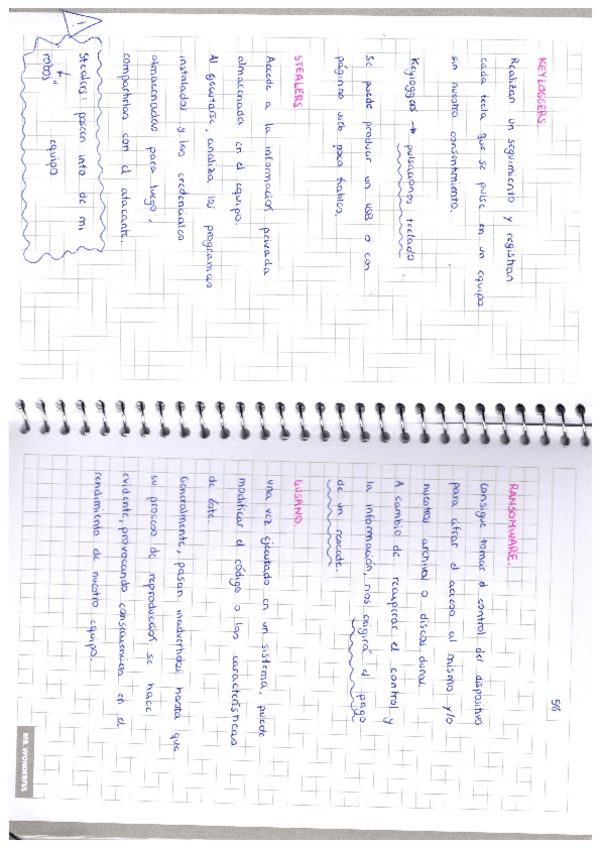 KEYLOGGERS.
Realizan un seguimiento y registran
cada tecla que se pulse en un equipo
sin nuestro consentimiento.
Keyloggers → pulsaciones teclado.
Se puede producir un USB o con
páginas web poco fiables.
STEALERS
Accede a la información privada
almacenada en el equipo.
Al ejecutarse, analiza los programas
instalados y las credenciales
almacenadas para luego,
compartirlas con el atacante.
!
Stealers: poseen info de mi
equipo
robos"
58
RANSOMWARE.
Consigue tomar el control del dispositivo
para cifrar el acceso al mismo y/o
nuestros archivos o discos duros.
A cambio de recuperar el control y
la información, nos exigirá el pago
de un rescate.
GUSANO.
Una vez ejecutado en un sistema, puede
modificar el código o las características
de éste.
Generalmente, pasan inadvertidos hasta que
su proceso de reproducción se hace
evidente, provocando consecuencias en el
rendimiento de nuestro equipo.
MR. WONDERFUL